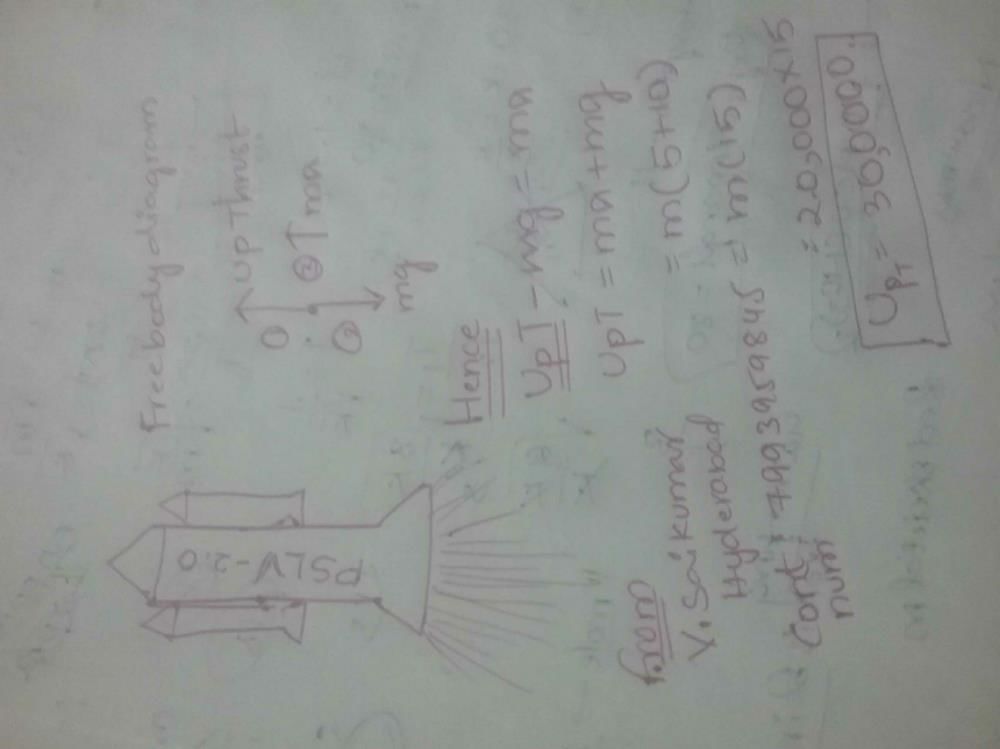 Freebody diagram
① Up Thrust
② ↑ ma
② mg
PSLV-2.0
Hence
UpT - mg = ma
UpT = ma + mg
= m(5+10)
= m(15)
= 20,000 x 15
UPT = 300000.
from
V. Sai kumar
Hyderabad
Cont : 7993959845
num